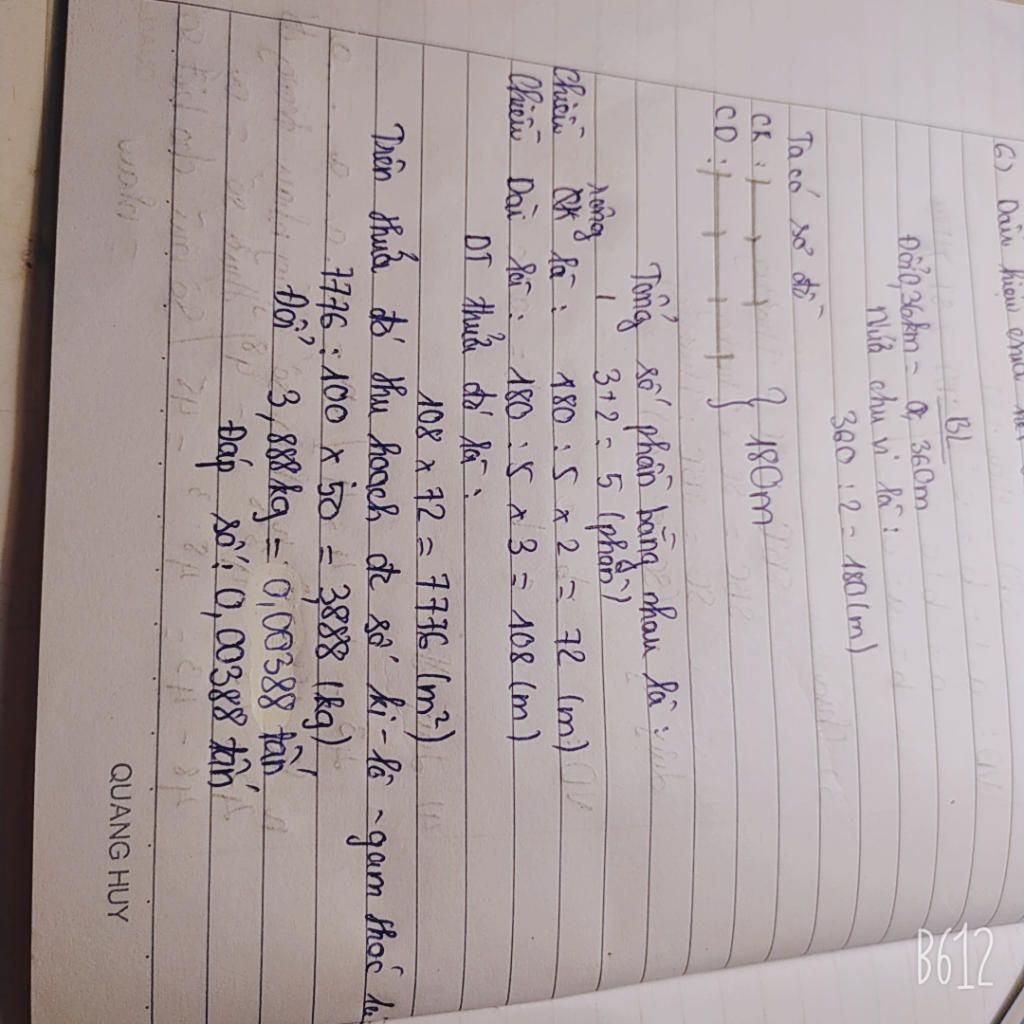 6) Dấu hiệu chia hết
BL
Đổi 0,36km = 360m
Nửa chu vi là:
360 : 2 = 180(m)
Ta có sơ đồ
CR :
CD :
} 180m
Tổng số phần bằng nhau là:
3+2 = 5 (phần)
Chiều rộng là: 180 : 5 x 2 = 72 (m)
Chiều Dài là: 180 : 5 x 3 = 108 (m)
DT thửa đó là:
108 x 72 = 7776 (m²)
Trên thửa đó thu hoạch đc số ki-lô-gam thóc là
7776 : 100 x 50 = 3,888 (kg)
Đổi 3,888kg = 0,00388 tấn
Đáp số: 0,00388 tấn
QUANG HUY
B612